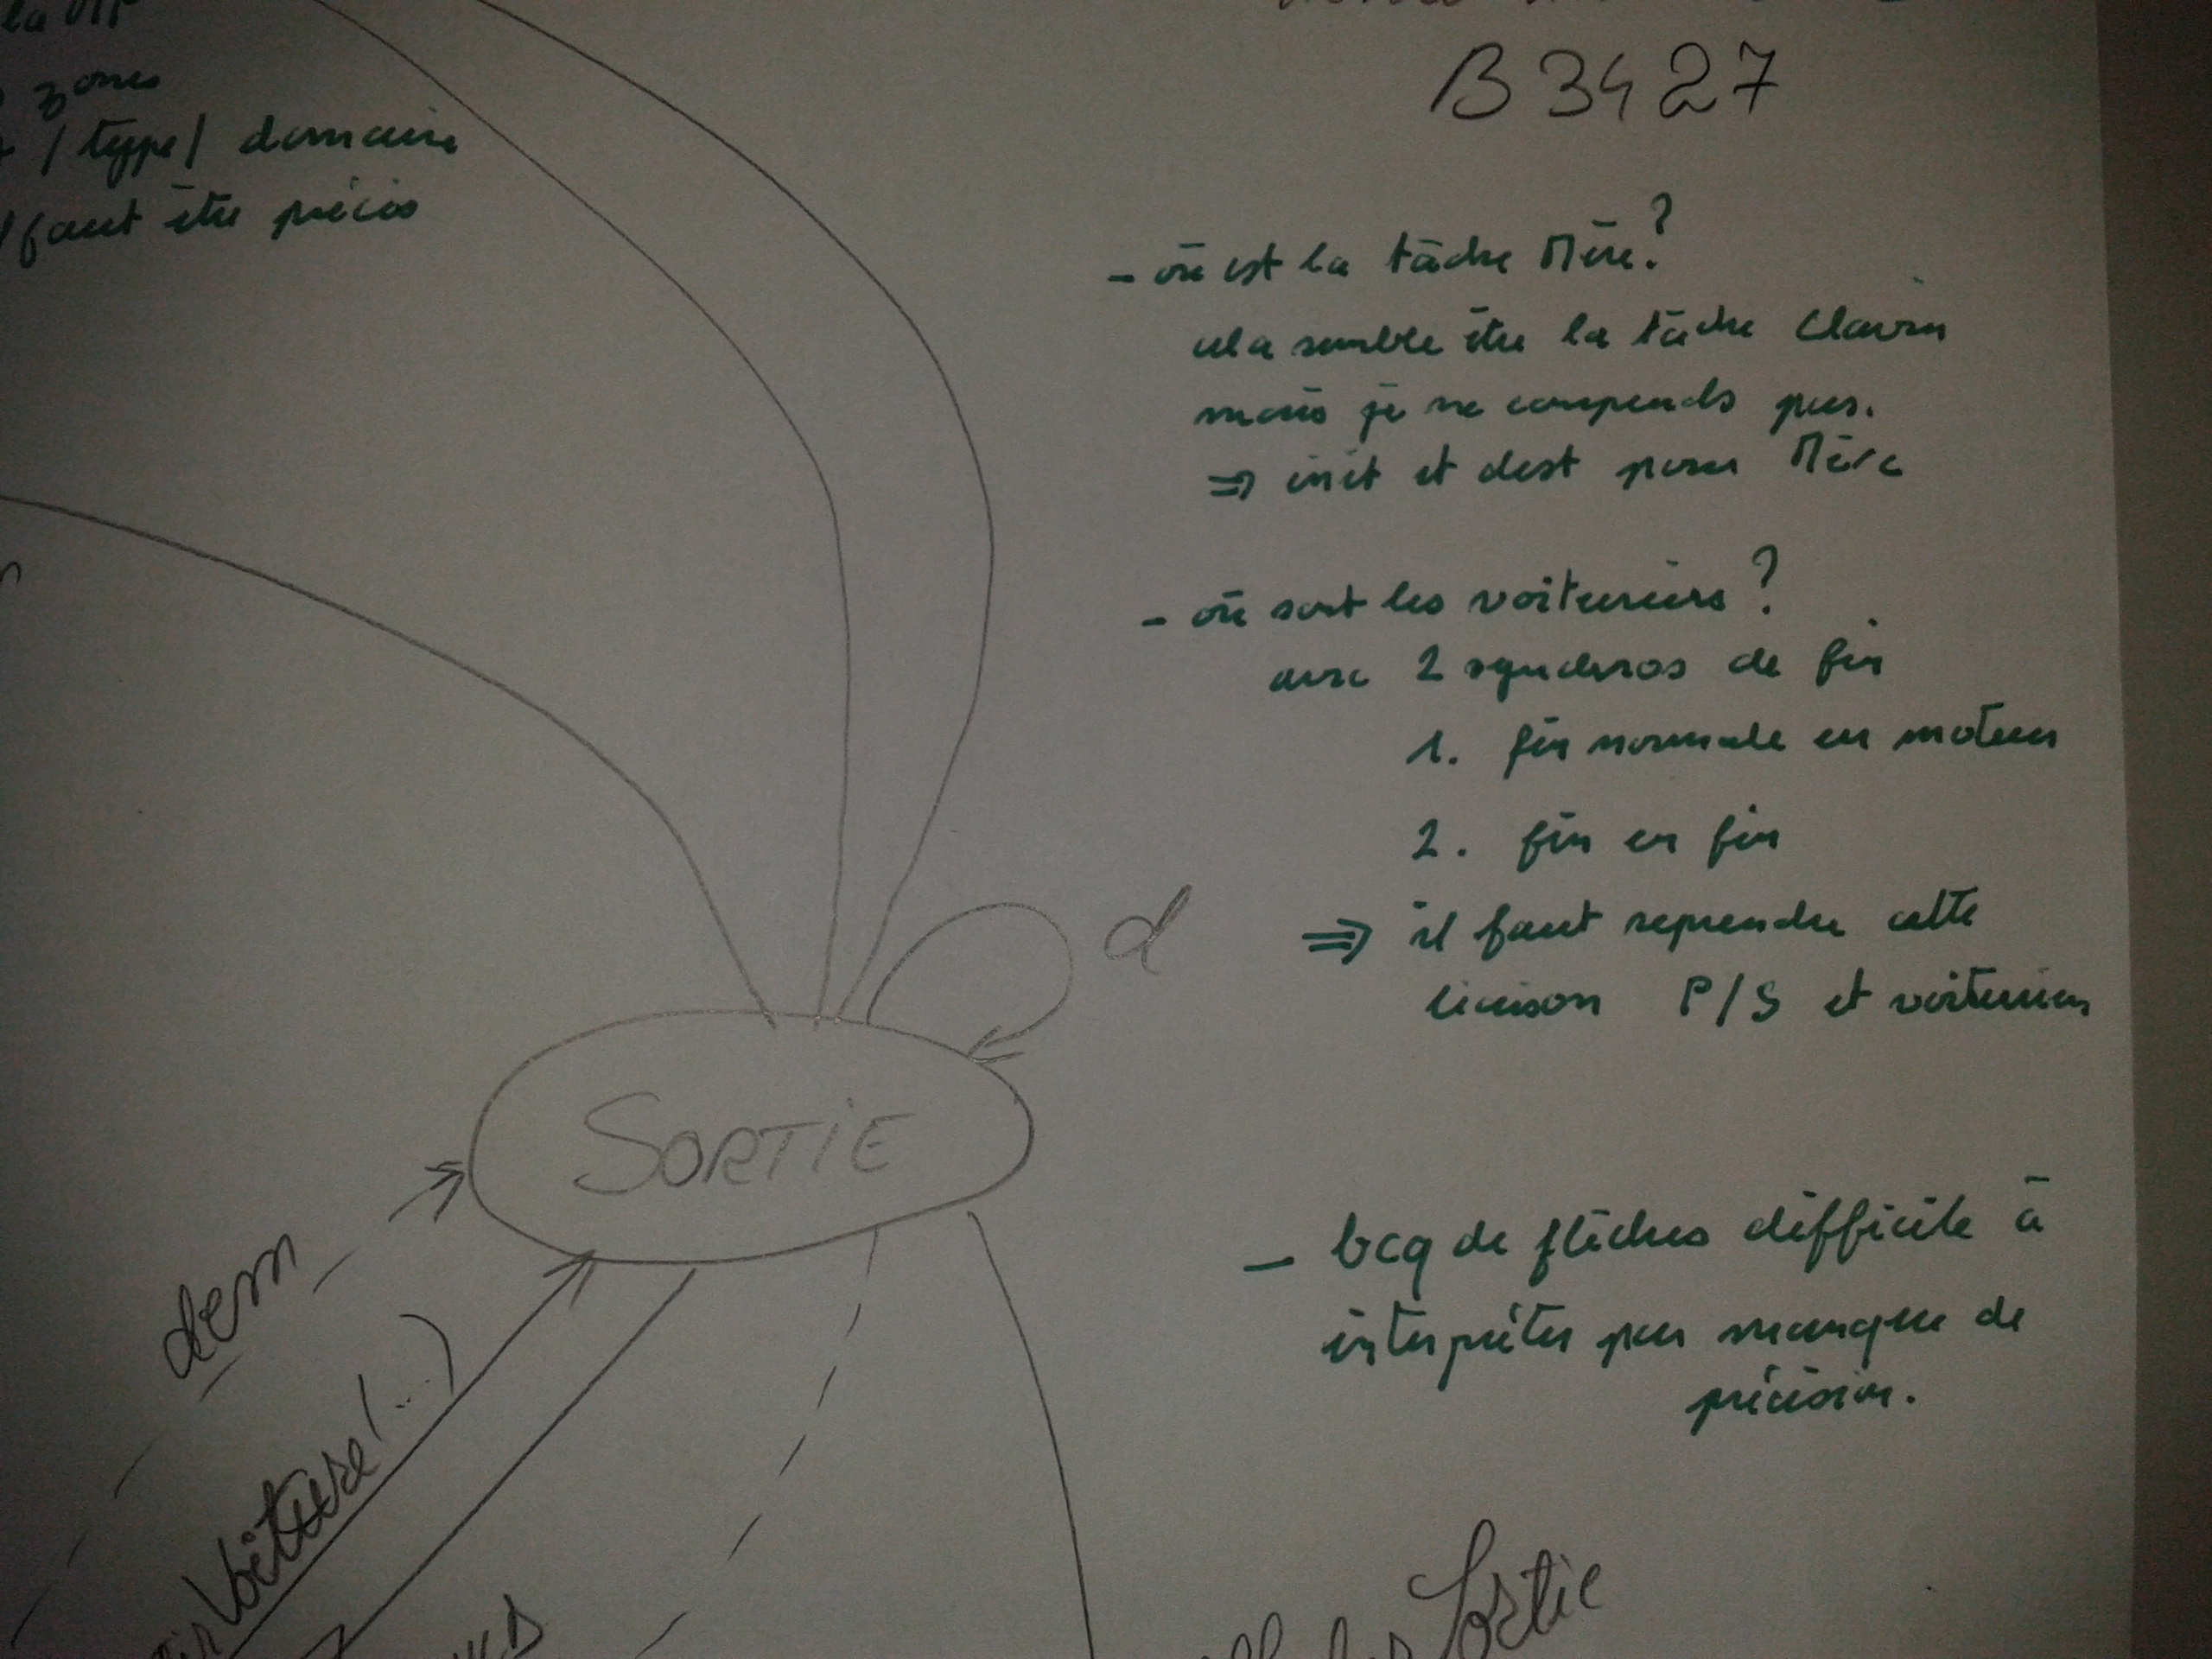 la
zones
/ type / domaine
faut être précis
B3427
- où est la tâche Mère ?
cela semble être la tâche Clavier
mais je ne comprends pas.
⇒ init et dest pour Mère
- où sont les voituriers ?
avec 2 synchros de fin
1. fin normale en moteur
2. fin en fin
⇒ il faut reprendre cette
liaison P/S et voituriers
d
SORTIE
dem
Voiture(...)
- bcq de flèches difficile à
interpréter par manque de
précision.
Sortie